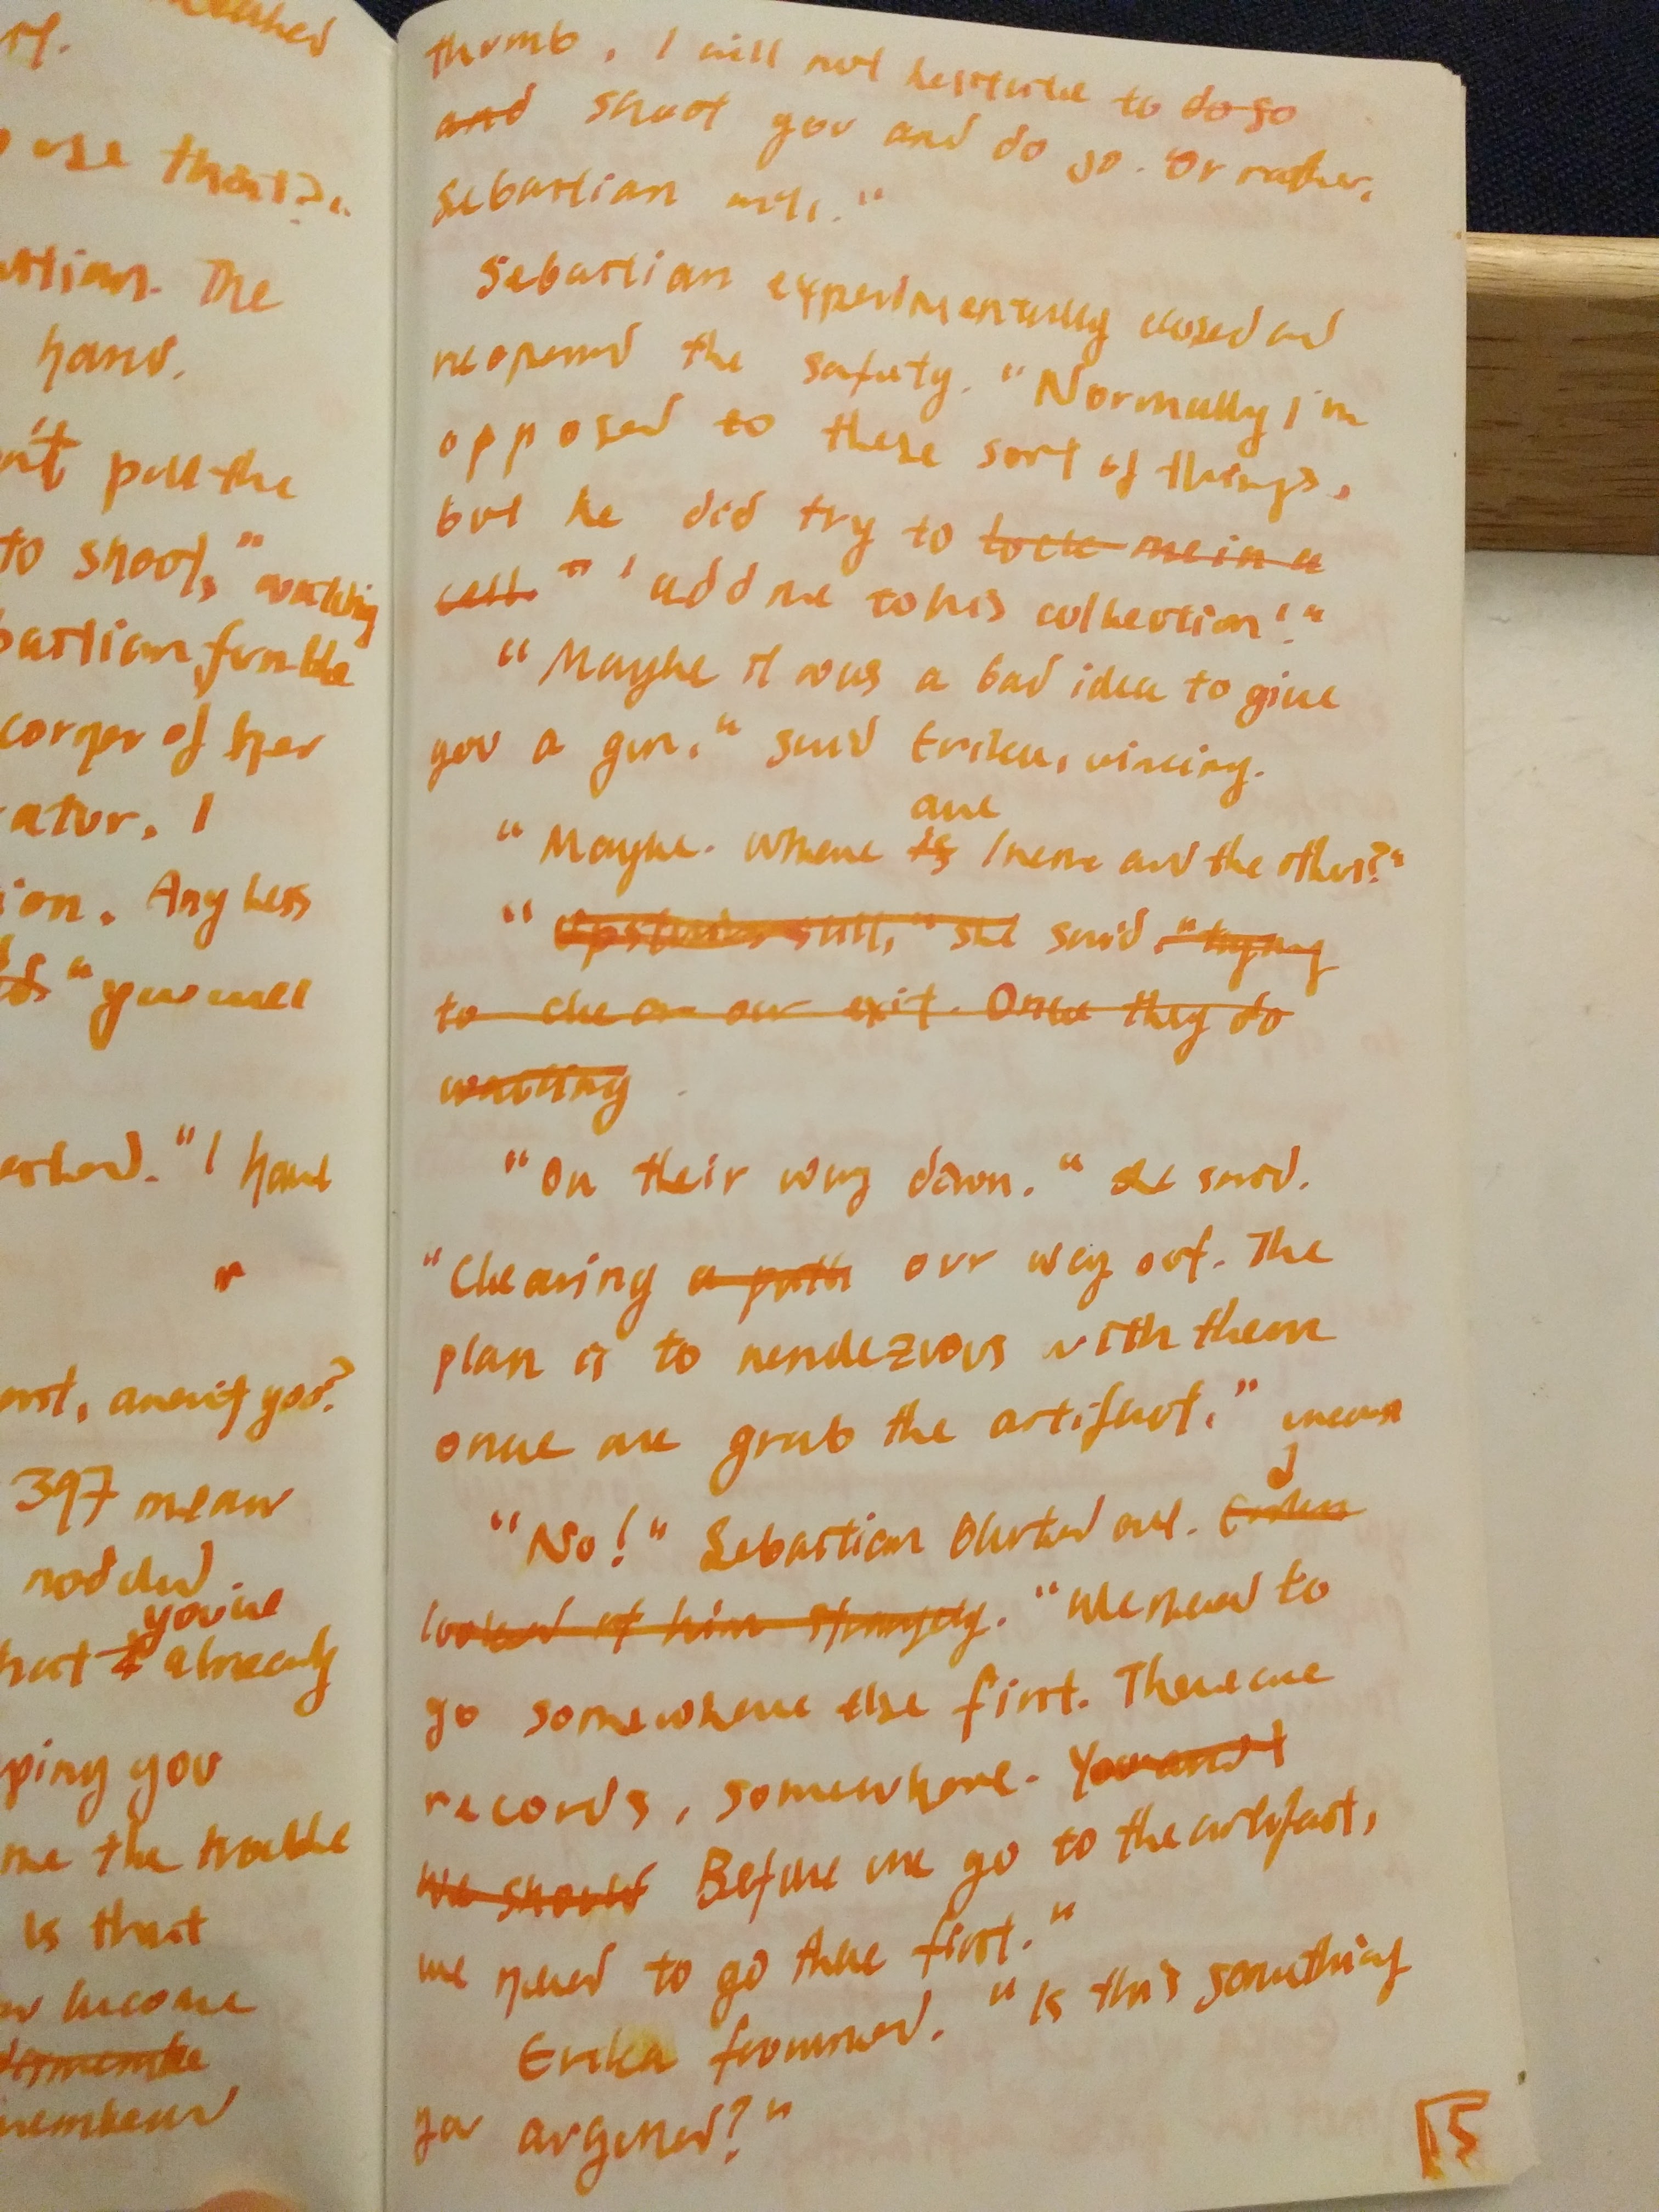 rt.
use that?"
astian. The
hand.
n't pull the
to shoot," watching
bastian fumble
corner of her
rator. I
ion. Any less
"you will
"I have
r
rst, aren't you?
397 mean
nodded.
you've
hat I already
ping you
me the trouble
is that
become
thumb, I will not hesitate to do so
and shoot you and do so. Or rather,
Sebastian will."
Sebastian experimentally closed and
reopened the safety. "Normally I'm
opposed to these sort of things,
but he did try to lock me in a
cell." 'add me to his collection'."
"Maybe it was a bad idea to give
you a gun," said Erika, wincing.
are
"Maybe. Where is Irene and the others?"
"Upstairs still," she said, "trying
to clear our exit. Once they do
waiting
"On their way down." she said.
"Clearing a path our way out. The
plan is to rendezvous with them
once we grab the artifact."
"No!" Sebastian blurted out. Erika
looked at him strangely. "We need to
go somewhere else first. There are
records, somewhere. You and I
We should Before we go to the artifact,
we need to go there first."
Erika frowned. "Is this something
you argued?"
15